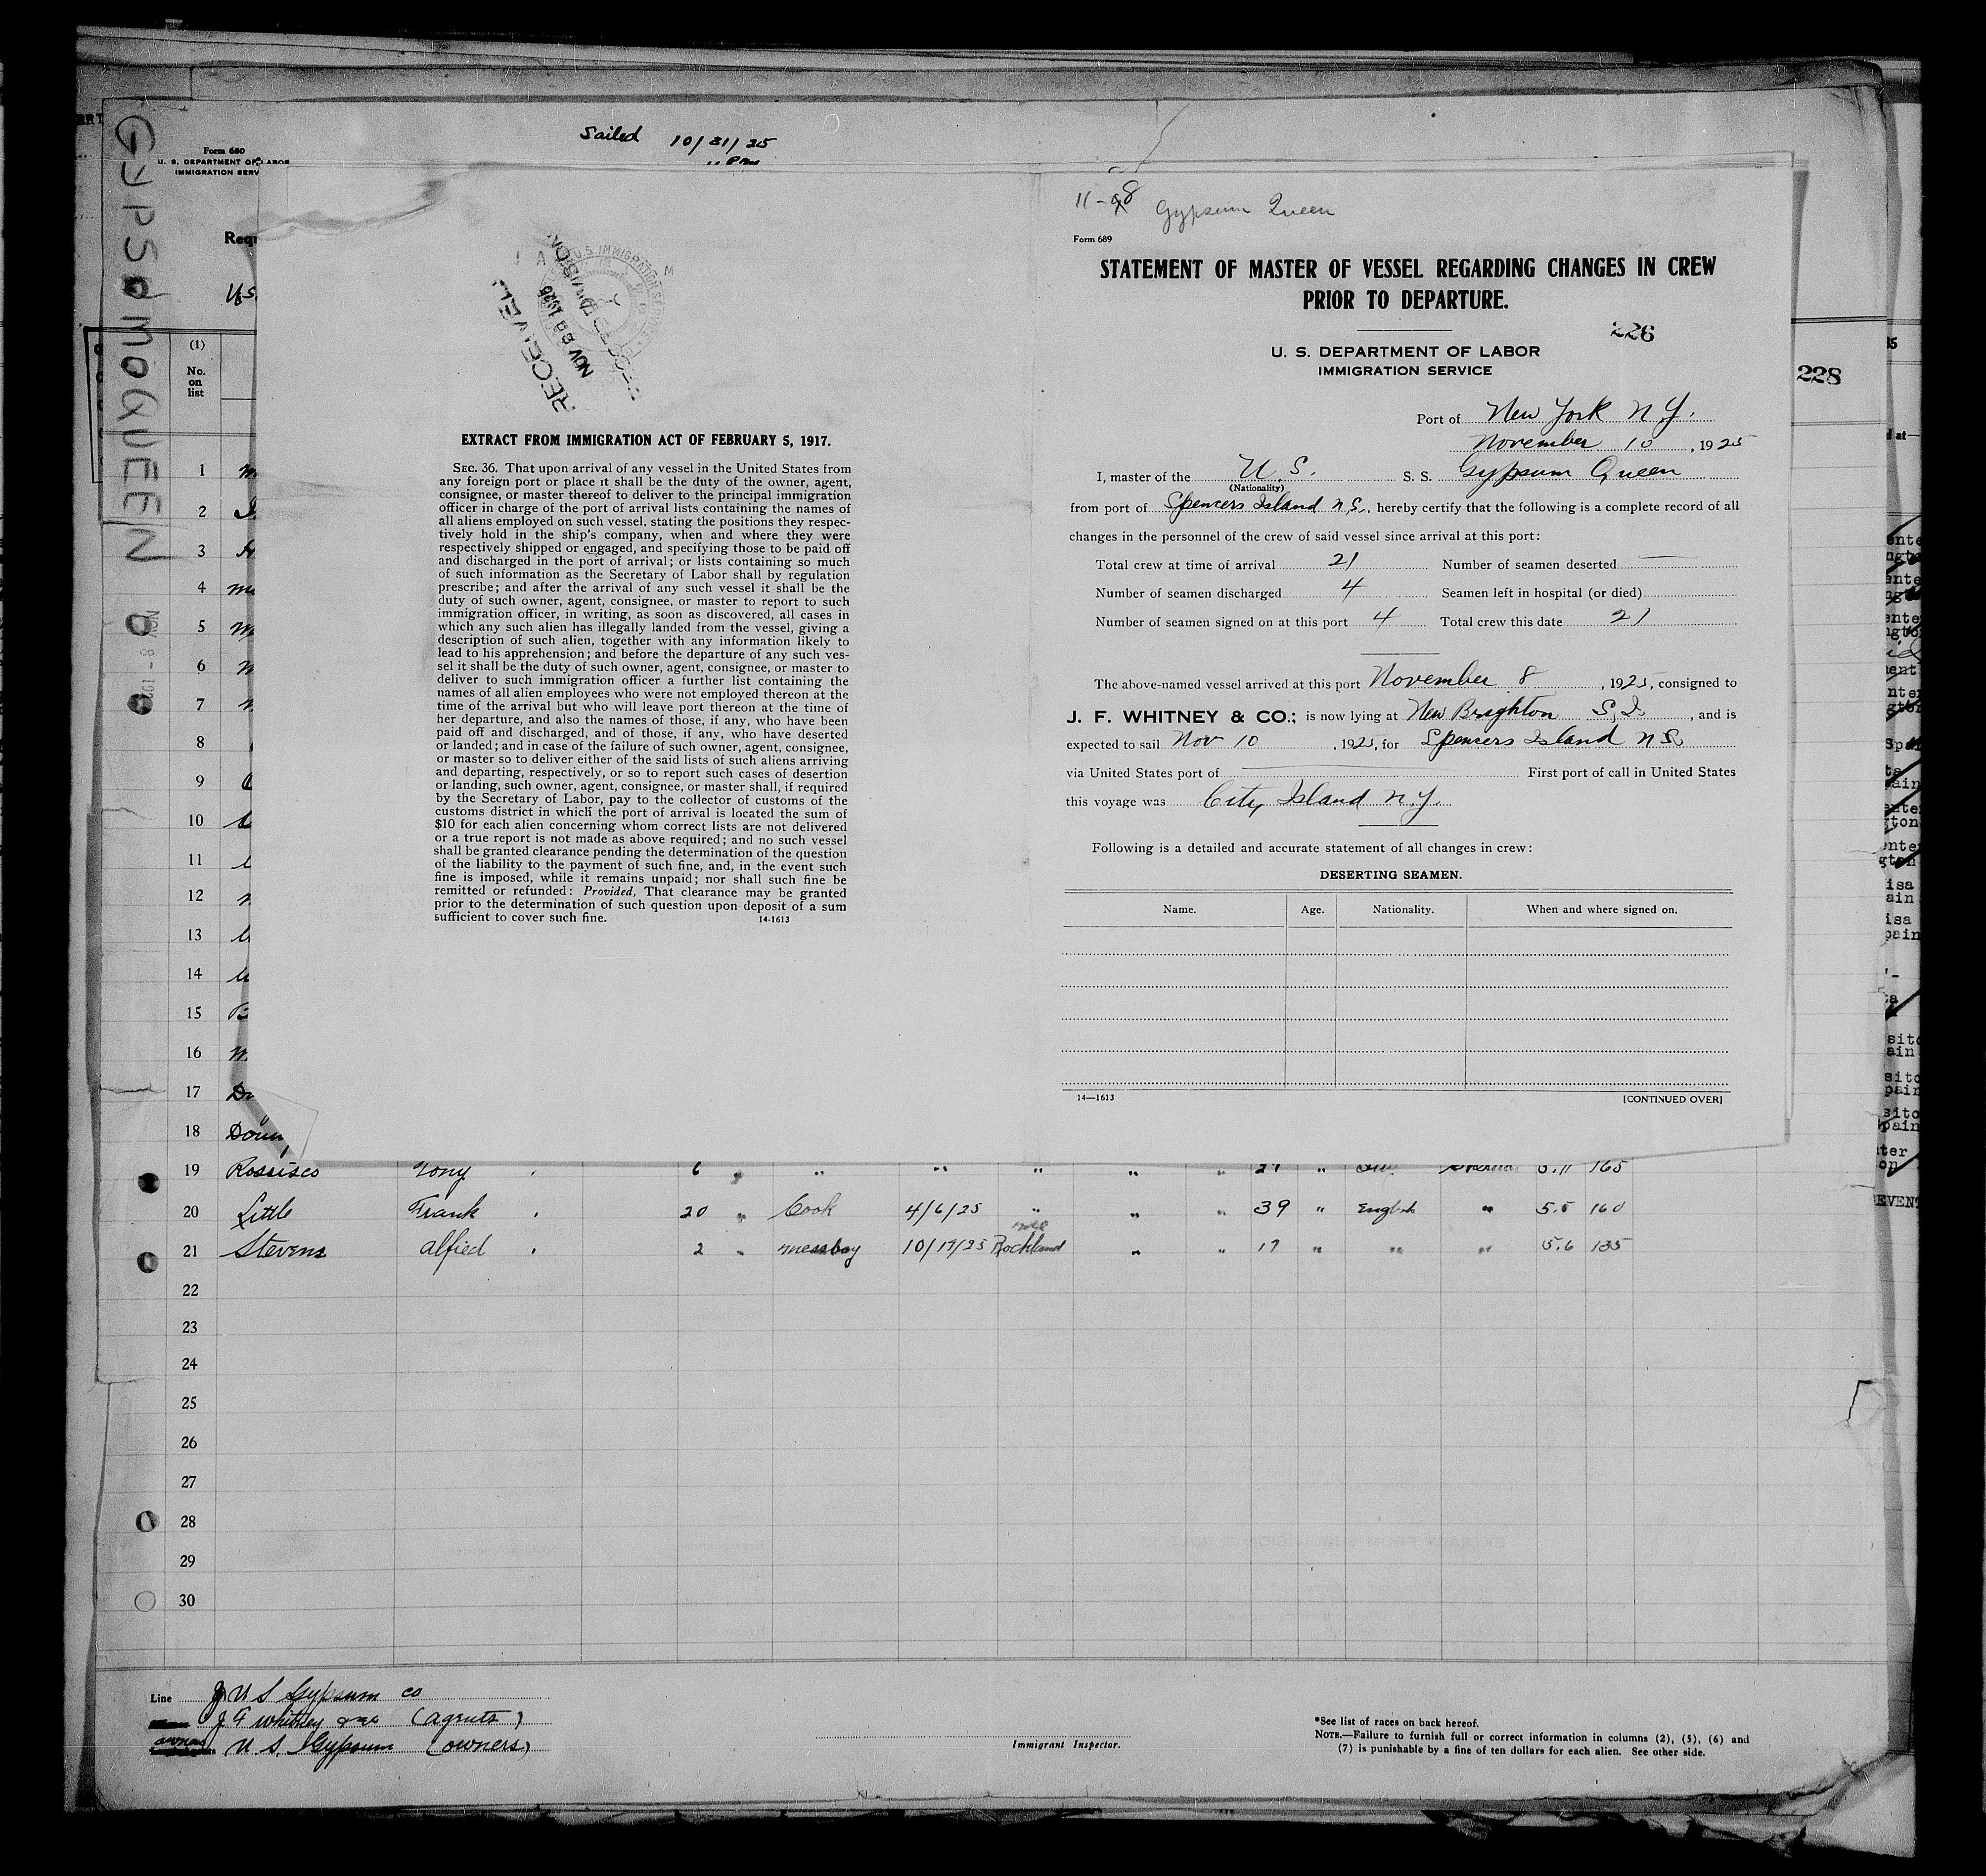 GYPSUM QUEEN
NOV 8 - 192
Sailed 10/31/25
Form 680
U. S. DEPARTMENT OF LABOR
IMMIGRATION SERV
Requ
U.S.
(1)
No.
on
list
228
11-8 Gypsum Queen
Form 689
STATEMENT OF MASTER OF VESSEL REGARDING CHANGES IN CREW
PRIOR TO DEPARTURE.
226
U. S. DEPARTMENT OF LABOR
IMMIGRATION SERVICE
Port of New York N.Y.
November 10, 1925
I, master of the U.S. S. S. Gypsum Queen
(Nationality)
from port of Spencers Island N.S., hereby certify that the following is a complete record of all
changes in the personnel of the crew of said vessel since arrival at this port:
Total crew at time of arrival 21 Number of seamen deserted
Number of seamen discharged 4 Seamen left in hospital (or died)
Number of seamen signed on at this port 4 Total crew this date 21
The above-named vessel arrived at this port November 8, 1925, consigned to
J. F. WHITNEY & CO.; is now lying at New Brighton S.I., and is
expected to sail Nov 10, 1925, for Spencers Island N.S.
via United States port of First port of call in United States
this voyage was City Island N.Y.
Following is a detailed and accurate statement of all changes in crew:
DESERTING SEAMEN.
Name. Age. Nationality. When and where signed on.
14—1613 [CONTINUED OVER]
RECEIVED
NOV 28 1925
U S IMMIGRATION SERVICE
EXTRACT FROM IMMIGRATION ACT OF FEBRUARY 5, 1917.
SEC. 36. That upon arrival of any vessel in the United States from
any foreign port or place it shall be the duty of the owner, agent,
consignee, or master thereof to deliver to the principal immigration
officer in charge of the port of arrival lists containing the names of
all aliens employed on such vessel, stating the positions they respec-
tively hold in the ship's company, when and where they were
respectively shipped or engaged, and specifying those to be paid off
and discharged in the port of arrival; or lists containing so much
of such information as the Secretary of Labor shall by regulation
prescribe; and after the arrival of any such vessel it shall be the
duty of such owner, agent, consignee, or master to report to such
immigration officer, in writing, as soon as discovered, all cases in
which any such alien has illegally landed from the vessel, giving a
description of such alien, together with any information likely to
lead to his apprehension; and before the departure of any such ves-
sel it shall be the duty of such owner, agent, consignee, or master to
deliver to such immigration officer a further list containing the
names of all alien employees who were not employed thereon at the
time of the arrival but who will leave port thereon at the time of
her departure, and also the names of those, if any, who have been
paid off and discharged, and of those, if any, who have deserted
or landed; and in case of the failure of such owner, agent, consignee,
or master so to deliver either of the said lists of such aliens arriving
and departing, respectively, or so to report such cases of desertion
or landing, such owner, agent, consignee, or master shall, if required
by the Secretary of Labor, pay to the collector of customs of the
customs district in which the port of arrival is located the sum of
$10 for each alien concerning whom correct lists are not delivered
or a true report is not made as above required; and no such vessel
shall be granted clearance pending the determination of the question
of the liability to the payment of such fine, and, in the event such
fine is imposed, while it remains unpaid; nor shall such fine be
remitted or refunded: Provided, That clearance may be granted
prior to the determination of such question upon deposit of a sum
sufficient to cover such fine. 14-1613
1
2
3
4
5
6
7
8
9
10
11
12
13
14
15
16
17
18
19 Rossisco Tony 6 " " " " " " 165
20 Little Frank 20 " Cook 4/6/25 " " " 39 " English " 5.5 160
21 Stevens Alfred 2 " messboy 10/17/25 Rockland " " 17 " " " 5.6 135
22
23
24
25
26
27
28
29
30
Line U S Gypsum co
J F Whitney & co (agents)
owners U. S. Gypsum (owners)
Immigrant Inspector.
*See list of races on back hereof.
NOTE.—Failure to furnish full or correct information in columns (2), (5), (6) and
(7) is punishable by a fine of ten dollars for each alien. See other side.